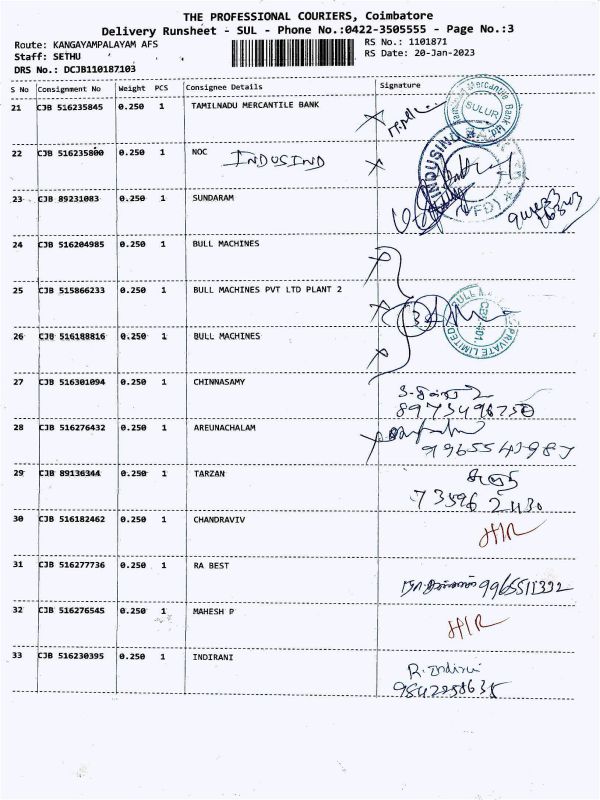 THE PROFESSIONAL COURIERS, Coimbatore
Delivery Runsheet - SUL - Phone No.:0422-3505555 - Page No.:3
Route: KANGAYAMPALAYAM AFS
RS No.: 1101871
Staff: SETHU
RS Date: 20-Jan-2023
DRS No.: DCJB110187103
S No Consignment No Weight PCS Consignee Details Signature
21 CJB 516235845 0.250 1 TAMILNADU MERCANTILE BANK SULUR
22 CJB 516235800 0.250 1 NOC INDUSIND
23 CJB 89231083 0.250 1 SUNDARAM
24 CJB 516204985 0.250 1 BULL MACHINES
25 CJB 515866233 0.250 1 BULL MACHINES PVT LTD PLANT 2
26 CJB 516188816 0.250 1 BULL MACHINES
27 CJB 516301094 0.250 1 CHINNASAMY
28 CJB 516276432 0.250 1 AREUNACHALAM
29 CJB 89136344 0.250 1 TARZAN
30 CJB 516182462 0.250 1 CHANDRAVIV H/R
31 CJB 516277736 0.250 1 RA BEST 9965511392
32 CJB 516276545 0.250 1 MAHESH P H/R
33 CJB 516230395 0.250 1 INDIRANI